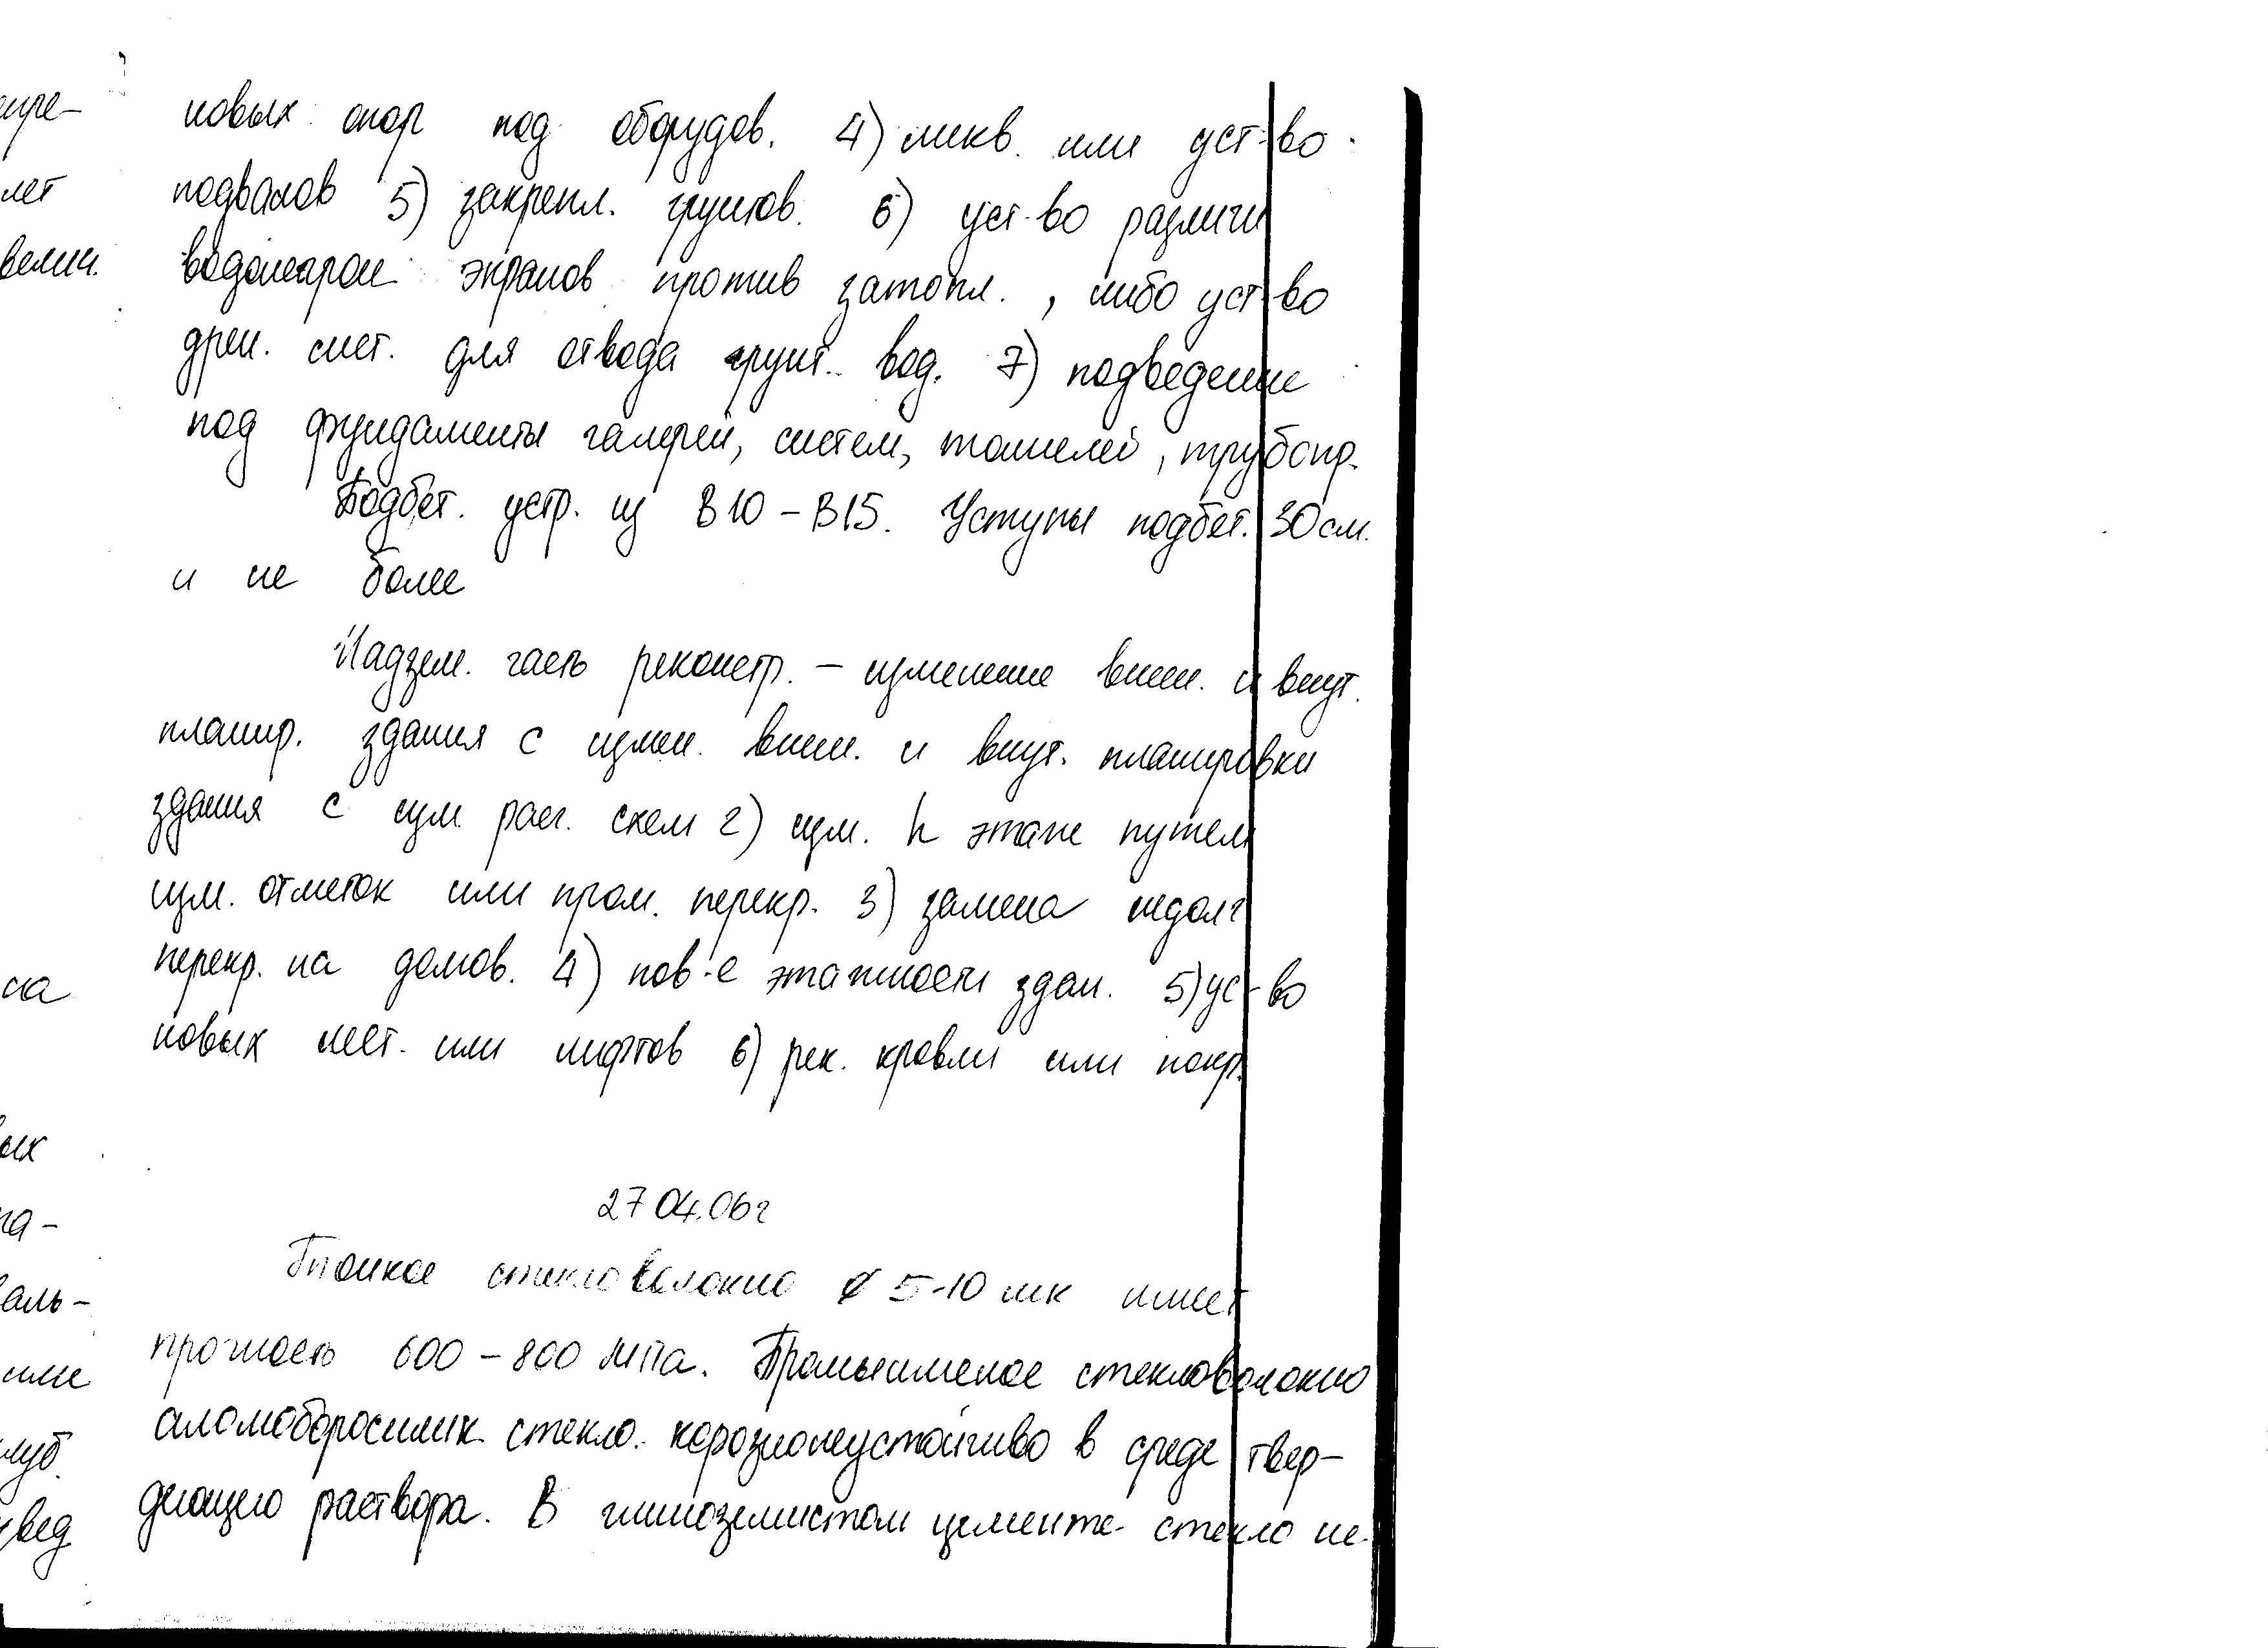 новых опор под оборудов. 4) ликв. или уст-во
подвалов 5) закрепл. грунтов. 6) уст-во различн
водонепрон экранов против затопл., либо уст-во
дрен. сист. для отвода грунт. вод. 7) подведение
под фундаменты галерей, систем, тоннелей, трубопр.
Подбет. устр. из В10-В15. Уступы подбет. 30см.
и не более
Надзем. часть реконстр. - изменение внеш. и внут.
планир. здания с измен. внеш. и внут. планировки
здания с изм. расч. схем 2) изм. h этаже путем
изм. отметок или пром. перекр. 3) замена недолг
перекр. на долгов. 4) пов-е этажности здан. 5) ус-во
новых лест. или лифтов 6) рек. кровли или покр.
27 04.06г
Тонкое стекловолокно ø 5-10 мк имеет
прочность 600-800 МПа. Промышленое стекловолокно
аломоборосилик. стекло. корозионеустойчиво в среде твер-
деющего раствора. В глиноземистом цементе стекло не
лет
велич.
на
ых
на-
аль-
или
луб.
вед